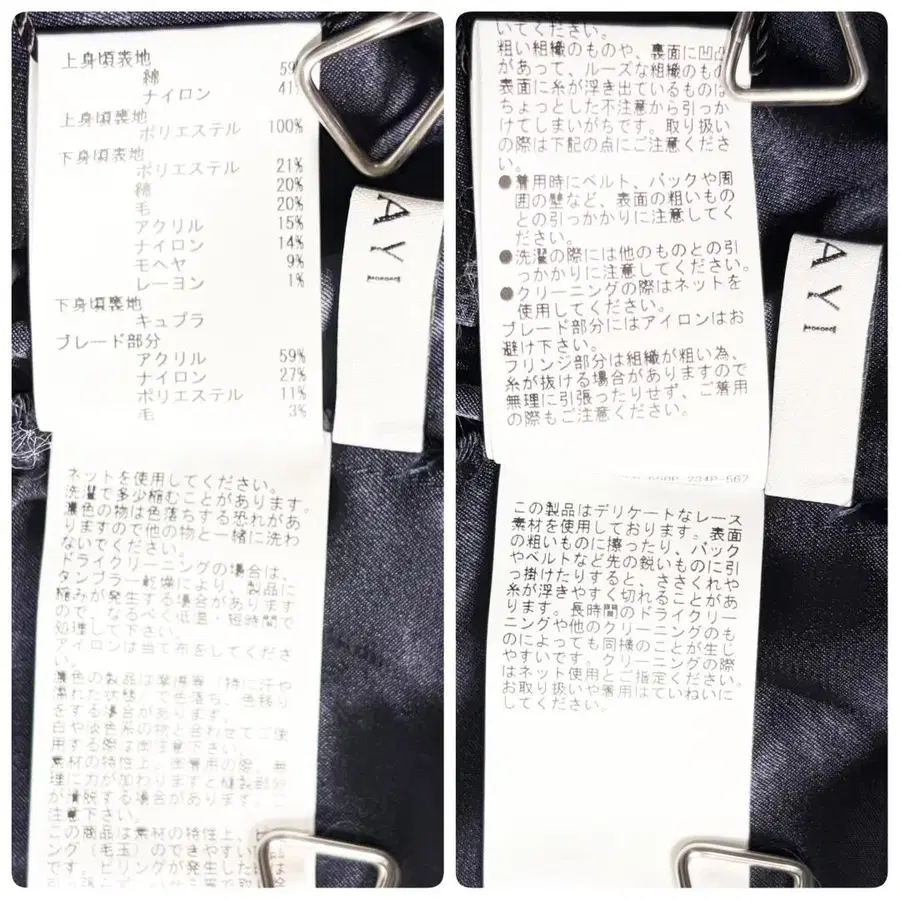 上身頃表地
綿 59
ナイロン 41%
上身頃裏地
ポリエステル 100%
下身頃表地
ポリエステル 21%
綿 20%
毛 20%
アクリル 15%
ナイロン 14%
モヘヤ 9%
レーヨン 1%
下身頃裏地
キュプラ
ブレード部分
アクリル 59%
ナイロン 27%
ポリエステル 11%
毛 3%
ネットを使用してください。
洗濯で多少縮むことがあります。
濃色の物は色落ちする恐れがあ
りますので他の物と一緒に洗わ
ないでください。
ドライクリーニングの場合は、
タンブラー乾燥により、製品に
縮みが発生する場合があります
ので、なるべく低温・短時間で
処理して下さい。
アイロンは当て布をしてくださ
い。
濃色の製品は摩擦等(特に汗や
濡れた状態)で色落ち、色移り
をする場合があります。
白や淡色系の物と合わせてご使
用する際は御注意下さい。
素材の特性上、御着用の際、無
理に力が加わりますと縫製部分
が滑脱する場合があります。ご
注意下さい。
この商品は素材の特性上、ピ
ング(毛玉)のできやすい
です。ピリングが発生した
AYI
いてください。
粗い組織のものや、裏面に凹凸
があって、ルーズな組織のもの
表面に糸が浮き出ているものは
ちょっとした不注意から引っか
けてしまいがちです。取り扱い
の際は下記の点にご注意くださ
い。
●着用時にベルト、バックや周
囲の壁など、表面の粗いもの
との引っかかりに注意してく
ださい。
●洗濯の際には他のものとの引
っかかりに注意してください。
●クリーニングの際はネットを
使用してください。
ブレード部分にはアイロンはお
避け下さい。
フリンジ部分は組織が粗い為、
糸が抜ける場合がありますので
無理に引張ったりせず、ご着用
の際もご注意ください。
234P-567
この製品はデリケートなレース
素材を使用しております。表面
の粗いものに擦ったり、バック
やベルトなど先の鋭いものに引
っ掛けたりすると、ささくれや
糸が浮きやすく切れることがあ
ります。長時間のドライクリー
ニングや他のクリーニングのも
のによっても同様のことが生じ
やすいです。クリーニングの際
はネット使用とご指定ください。
お取り扱いや着用はていねいに
してください。
AYI